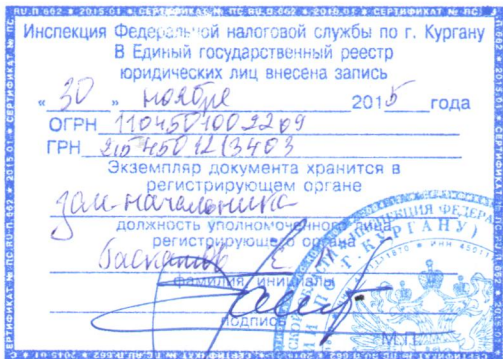 RU.П.662 * 2015.01 * СЕРТИФИКАТ № ПС.RU.П.662 * 2015.01 * СЕРТИФИКАТ № ПС
Инспекция Федеральной налоговой службы по г. Кургану
В Единый государственный реестр
юридических лиц внесена запись
« 30 » ноября 2015 года
ОГРН 1104501002209
ГРН
Экземпляр документа хранится в
регистрирующем органе
зам. начальника
должность уполномоченного лица
регистрирующего органа
фамилия, инициалы
подпись
М.П.